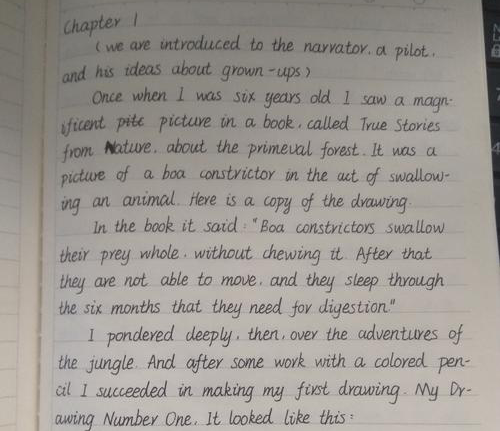 Chapter 1
(we are introduced to the narrator, a pilot,
and his ideas about grown-ups)
Once when I was six years old I saw a magn-
ificent pitc picture in a book, called True Stories
from Nature, about the primeval forest. It was a
picture of a boa constrictor in the act of swallow-
ing an animal. Here is a copy of the drawing.
In the book it said: "Boa constrictors swallow
their prey whole, without chewing it. After that
they are not able to move, and they sleep through
the six months that they need for digestion"
I pondered deeply, then, over the adventures of
the jungle. And after some work with a colored pen-
cil I succeeded in making my first drawing. My Dr-
awing Number One. It looked like this: